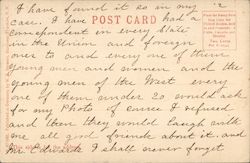 I have found it so in my
case. I have
POST CARD
had a
correspondent in every State
in the Union and foreign
ones to and every one of the
young men and women and the
young men of the West every
one of them under 20 would ask
for my Photo of course I refused
and then they would laugh with
me all good friends about it. and
Mr Editor I shall never forget